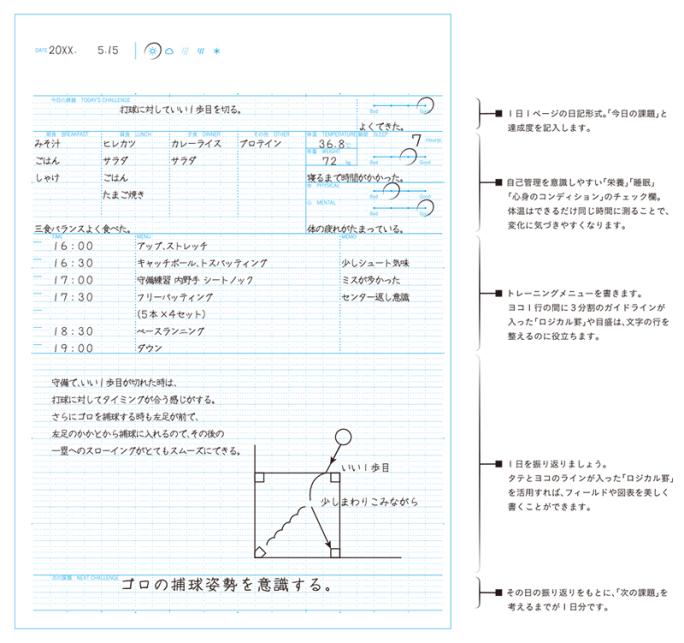 DATE 20XX. 5.15
今日の課題 TODAY'S CHALLENGE
打球に対していい1歩目を切る。
Bad Good
よくできた。
朝食 BREAKFAST 昼食 LUNCH 夕食 DINNER その他 OTHER 体温 TEMPERATURE 睡眠 SLEEP
みそ汁 ヒレカツ カレーライス プロテイン 36.8℃ 7 Hours
体重 WEIGHT
ごはん サラダ サラダ 72 kg Bad Good
しゃけ ごはん 寝るまで時間がかかった。
体 PHYSICAL
たまご焼き Bad Good
心 MENTAL
Bad Good
三食バランスよく食べた。 体の疲れがたまっている。
TIME MENU MEMO
16:00 アップ、ストレッチ
16:30 キャッチボール、トスバッティング 少しシュート気味
17:00 守備練習 内野手 シートノック ミスが多かった
17:30 フリーバッティング センター返し意識
(5本×4セット)
18:30 ベースランニング
19:00 ダウン
守備で、いい1歩目が切れた時は、
打球に対してタイミングが合う感じがする。
さらにゴロを捕球する時も左足が前で、
左足のかかとから捕球に入れるので、その後の
一塁へのスローイングがとてもスムーズにできる。
いい1歩目
少しまわりこみながら
次の課題 NEXT CHALLENGE
ゴロの捕球姿勢を意識する。
■ 1日1ページの日記形式。「今日の課題」と
達成度を記入します。
■ 自己管理を意識しやすい「栄養」「睡眠」
「心身のコンディション」のチェック欄。
体温はできるだけ同じ時間に測ることで、
変化に気づきやすくなります。
■ トレーニングメニューを書きます。
ヨコ1行の間に3分割のガイドラインが
入った「ロジカル罫」や目盛は、文字の行を
整えるのに役立ちます。
■ 1日を振り返りましょう。
タテとヨコのラインが入った「ロジカル罫」
を活用すれば、フィールドや図表を美しく
書くことができます。
■ その日の振り返りをもとに、「次の課題」を
考えるまでが1日分です。